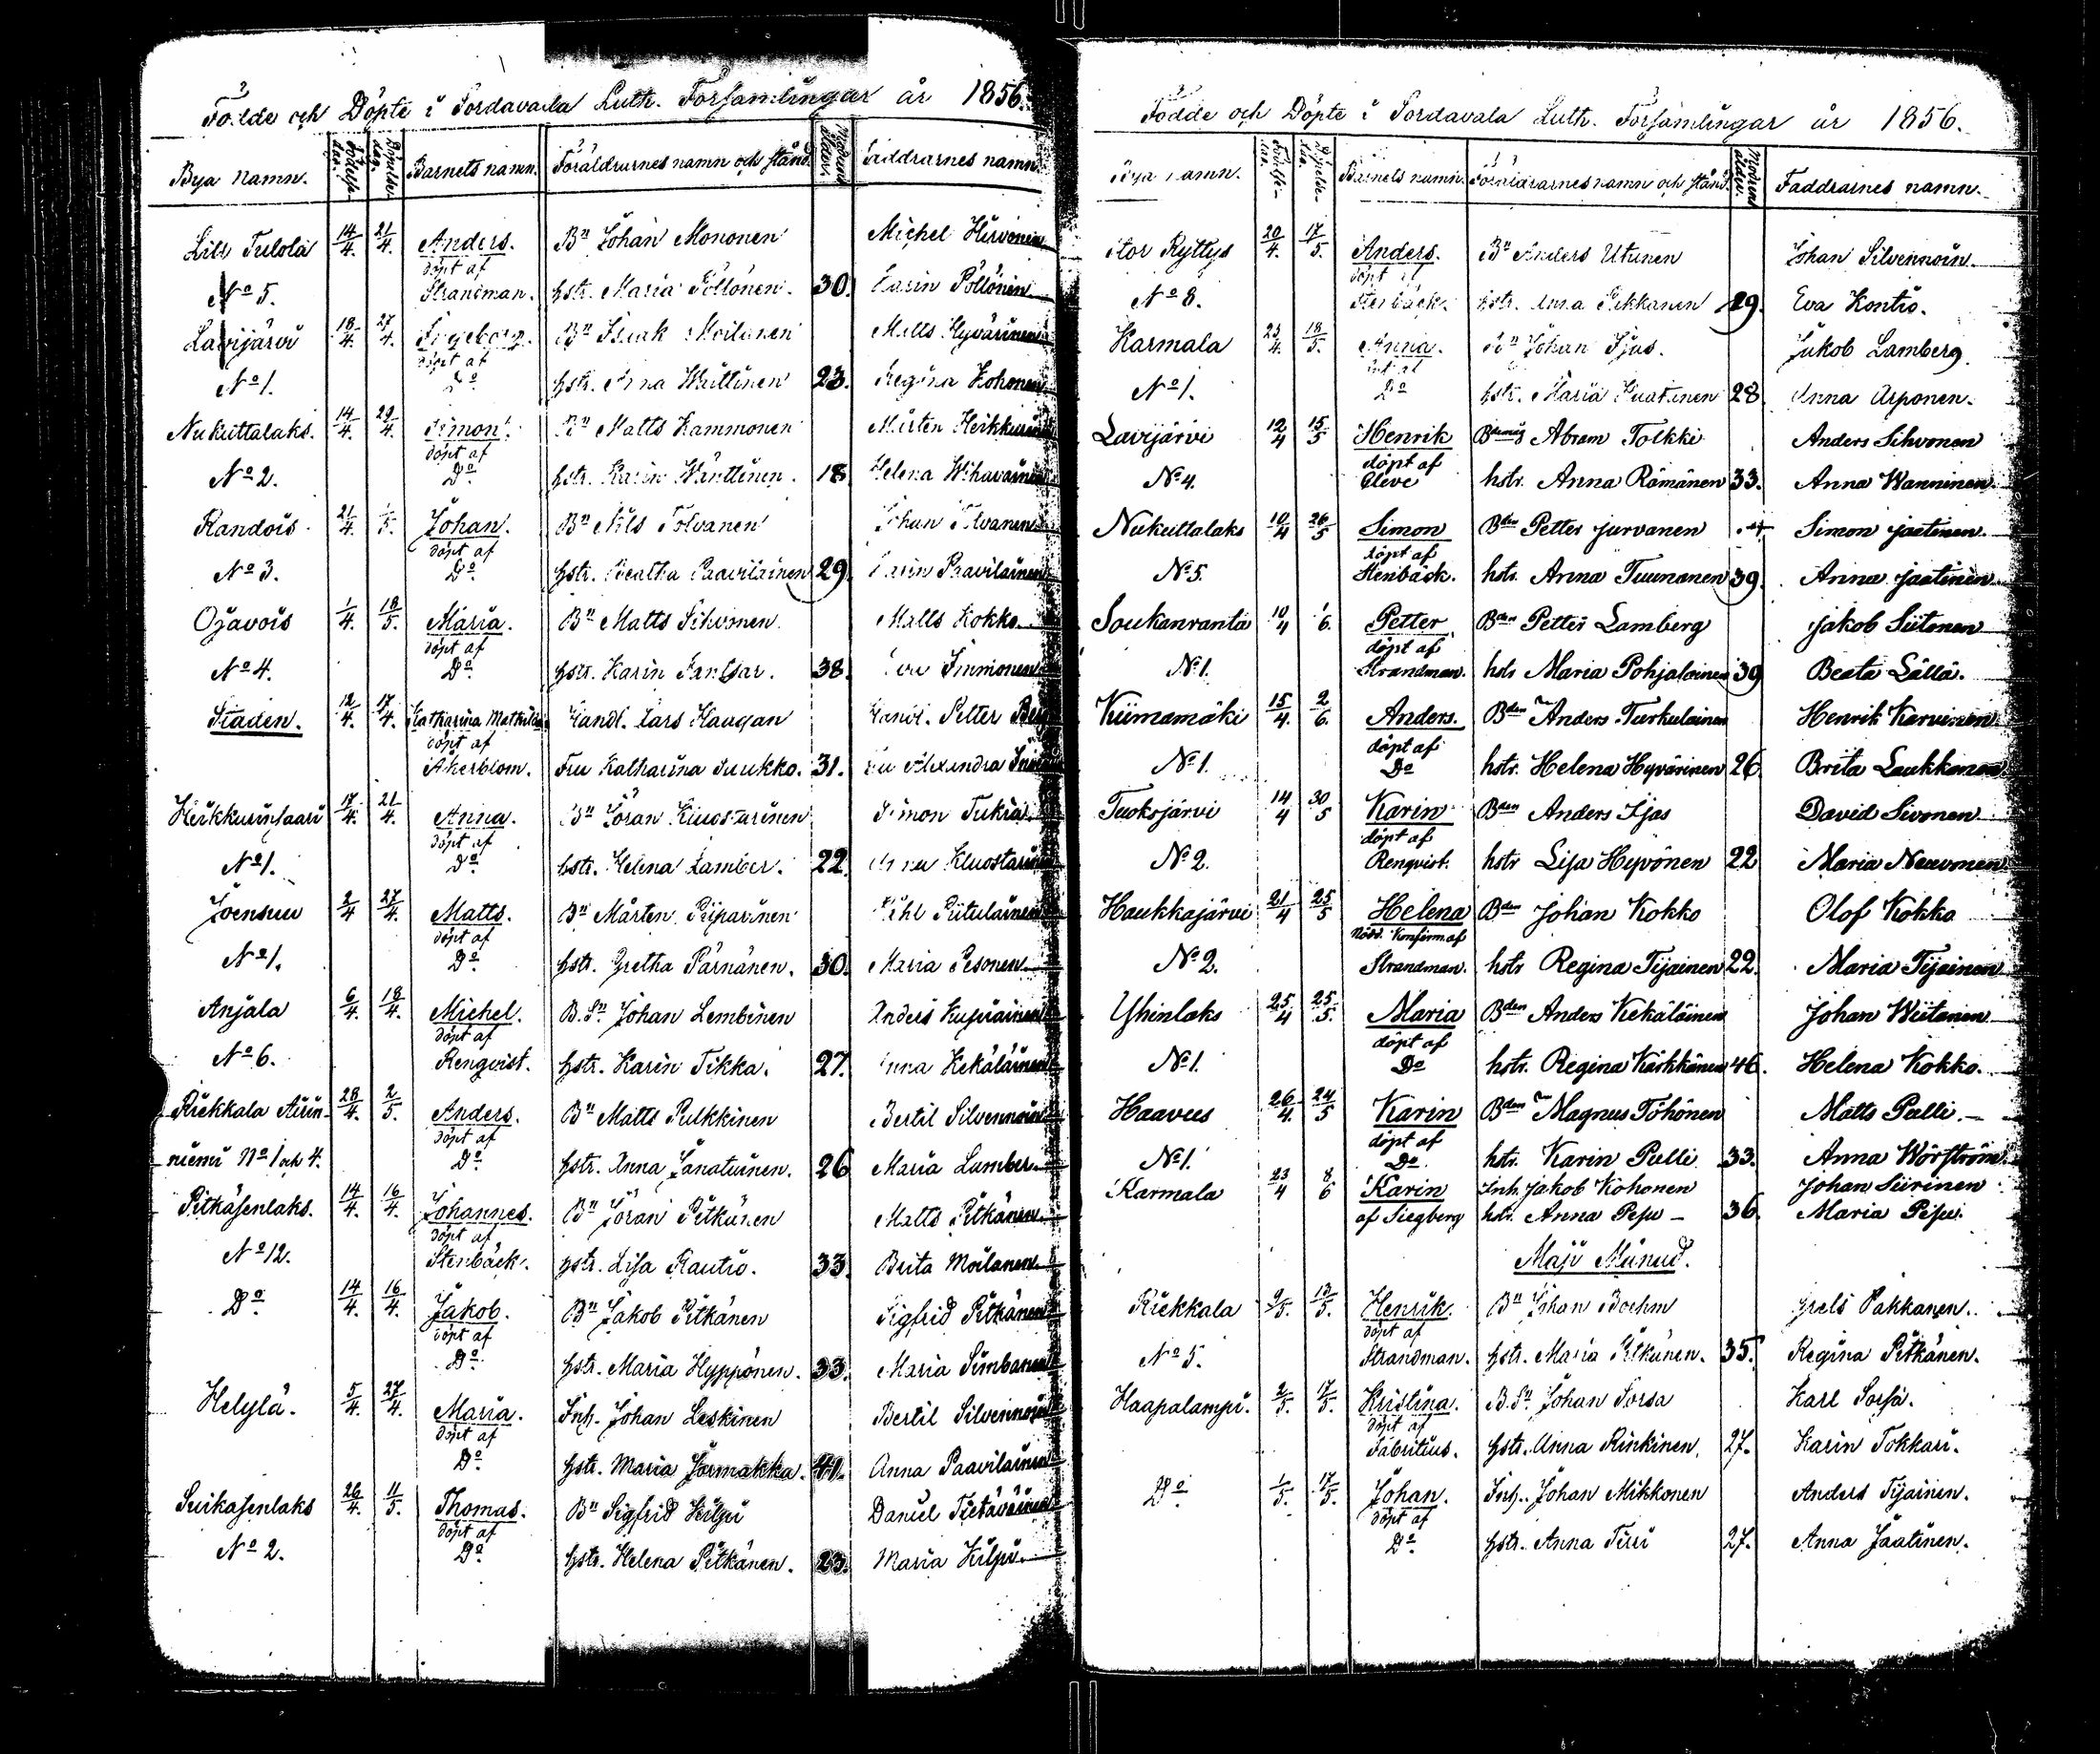 Födde och Döpte i Sordavala Luth. Församlingar år 1856.
Bya namn. Födelse-dag. Döpelse-dag. Barnets namn. Föräldrarnes namn och stånd. Modrens ålder. Faddrarnes namn.
Lill Tulola 14/4. 21/4. Anders. Bn Johan Mononen Michel Hirvonen
No 5. döpt af Strandman. hstr. Maria Pöllönen. 30. Karin Pöllönen
Lavijärvi 18/4. 27/4. Ingeborg. Bn Isaak Moilanen Matts Hyvärinen
No 1. döpt af Do hstr. Anna Wänttinen 23. Regina Kohonen
Nukuttalaks. 14/4. 29/4. Simon. Bn Matts Kammonen Mårten Heikkurinen
No 2. döpt af Do hstr. Karin Wänttinen. 18 Helena Wihavainen
Randois 21/4. 1/5. Johan. Bn Nils Tolvanen Johan Tolvanen
No 3. döpt af Do hstr. Beatha Paavilainen 29. Karin Paavilainen
Ojavois 1/4. 18/5. Maria. Bn Matts Sihvonen. Matts Kokko.
No 4. döpt af Do hstr. Karin 38. Immonen
Staden. 12/4. 17/4. Katharina Mathilda Handl. Lars Haugan Handl. Petter
döpt af Åkerblom. Fru Katharina Suukko. 31. Alexandra
Heikkurinsaari 17/4. 21/4. Anna. Bn Jöran Kluostarinen Simon Tukia
No 1. döpt af Do hstr. Helena Lamber. 22. Anna Kluostarinen
Joensuu 2/4 27/4. Matts. Bn Mårten Piiparinen Piitulainen
No 1. döpt af Do hstr. Gretha Pärnänen. 30. Maria Pesonen
Anjala 6/4. 18/4. Michel. B. Sn. Johan Lembinen Anders Kupiainen
No 6. döpt af Renqvist. hstr. Karin Tikka. 27. Anna Kekäläinen
Riekkala Airin- 28/4. 2/5. Anders. Bn Matts Pulkkinen Bertil Silvennoinen
niemi No 1 och 4. döpt af Do hstr. Anna Janatuinen. 26 Maria Lamber
Pitkäsenlaks. 14/4. 16/4. Johannes. Bn Jöran Pitkänen Matts Pitkänen
No 12. döpt af Stenbäck. hstr. Lisa Rautio. 33. Brita Moilanen
Do 14/4. 16/4. Jakob. Bn Jakob Pitkänen Sigfrid Pitkänen
döpt af Do hstr. Maria Hyppönen. 33. Maria Simbanen
Helylä. 5/4. 27/4. Maria. Inh. Johan Leskinen Bertil Silvennoinen
döpt af Do hstr. Maria Jormakka. 41. Anna Paavilainen
Suikasenlaks 26/4. 11/5. Thomas. Bn Sigfrid Kilpi Daniel Tietäväinen
No 2. döpt af Do hstr. Helena Pitkänen. 23. Maria Kilpi.
Födde och Döpte i Sordavala Luth. Församlingar år 1856.
Bya namn. Födelse-dag. Döpelse-dag. Barnets namn. Föräldrarnes namn och stånd. Modrens ålder. Faddrarnes namn.
Stor Ryttys 20/4. 17/5. Anders. Bn Anders Utunen Johan Silvennoin.
No 8. döpt af Stenbäck. hstr. Anna Pekkanen 29. Eva Kontio.
Karmala 25/4. 18/5. Anna. Bn Johan Ijas. Jakob Lamberg.
No 1. döpt af Do hstr. Maria 28. Anna Arponen.
Lavijärvi 12/4 15/5 Henrik Abram Tolkki Anders Sihvonen
No 4. döpt af Cleve hstr. Anna Römänen 33. Anna Wanninen.
Nukuttalaks 10/4 26/5 Simon Bden Petter Jurvanen Simon Jaatinen.
No 5. döpt af Stenbäck. hstr. Anna Tuunanen 39. Anna Jaatinen
Soukanranta 10/4 1/6. Petter Bden Petter Lamberg Jakob Siitonen
No 1. döpt af Strandman. hstr Maria Pohjalainen 39 Beata Lällä.
Kiimamäki 15/4. 2/6. Anders. Bden Anders Turkulainen Henrik Karvinen
No 1. döpt af Do hstr. Helena Hyvärinen 26 Brita Laukkanen
Tuoksjärvi 14/4 30/5 Karin Bden Anders Ijas David Sivonen
No 2. döpt af Renqvist. hstr Lisa Hyvönen 22 Maria Neuvonen
Haukkajärvi 21/4 25/5 Helena Bden Johan Kokko Olof Kokko
No 2. Nöd. Konfirm. af Strandman. hstr Regina Tijainen 22. Maria Tijainen
Yhinlaks 25/4 25/5. Maria Bden Anders Kekäläinen Johan Wiitanen
No 1. döpt af Do hstr. Regina Kärkkänen 46. Helena Kokko.
Haavus 26/4. 24/5 Karin Bden Magnus Töhönen Matts Pulli.
No 1. döpt af Do hstr. Karin Pulli 33. Anna Wörström
Karmala 23/4 8/6 Karin Inh. Jakob Kohonen Johan Siirinen
af Siegberg hstr. Anna Pesu - 36. Maria Pesu.
Maji Månad.
Riekkala 9/5. 13/5. Henrik. Bn Johan Boehm Grels Pakkanen.
No 5. döpt af Strandman. hstr. Maria Pitkänen. 35. Regina Pitkänen.
Haapalampi. 2/5. 17/5. Kristina. B. Sn. Johan Sorsa Karl Sorsa.
döpt af Fabritius. hstr. Anna Rinkinen. 27. Karin Tokkari.
Do 1/5. 17/5. Johan. Inh. Johan Mikkonen Anders Tijainen.
döpt af Do hstr. Anna Tiiri 27. Anna Jaatinen.